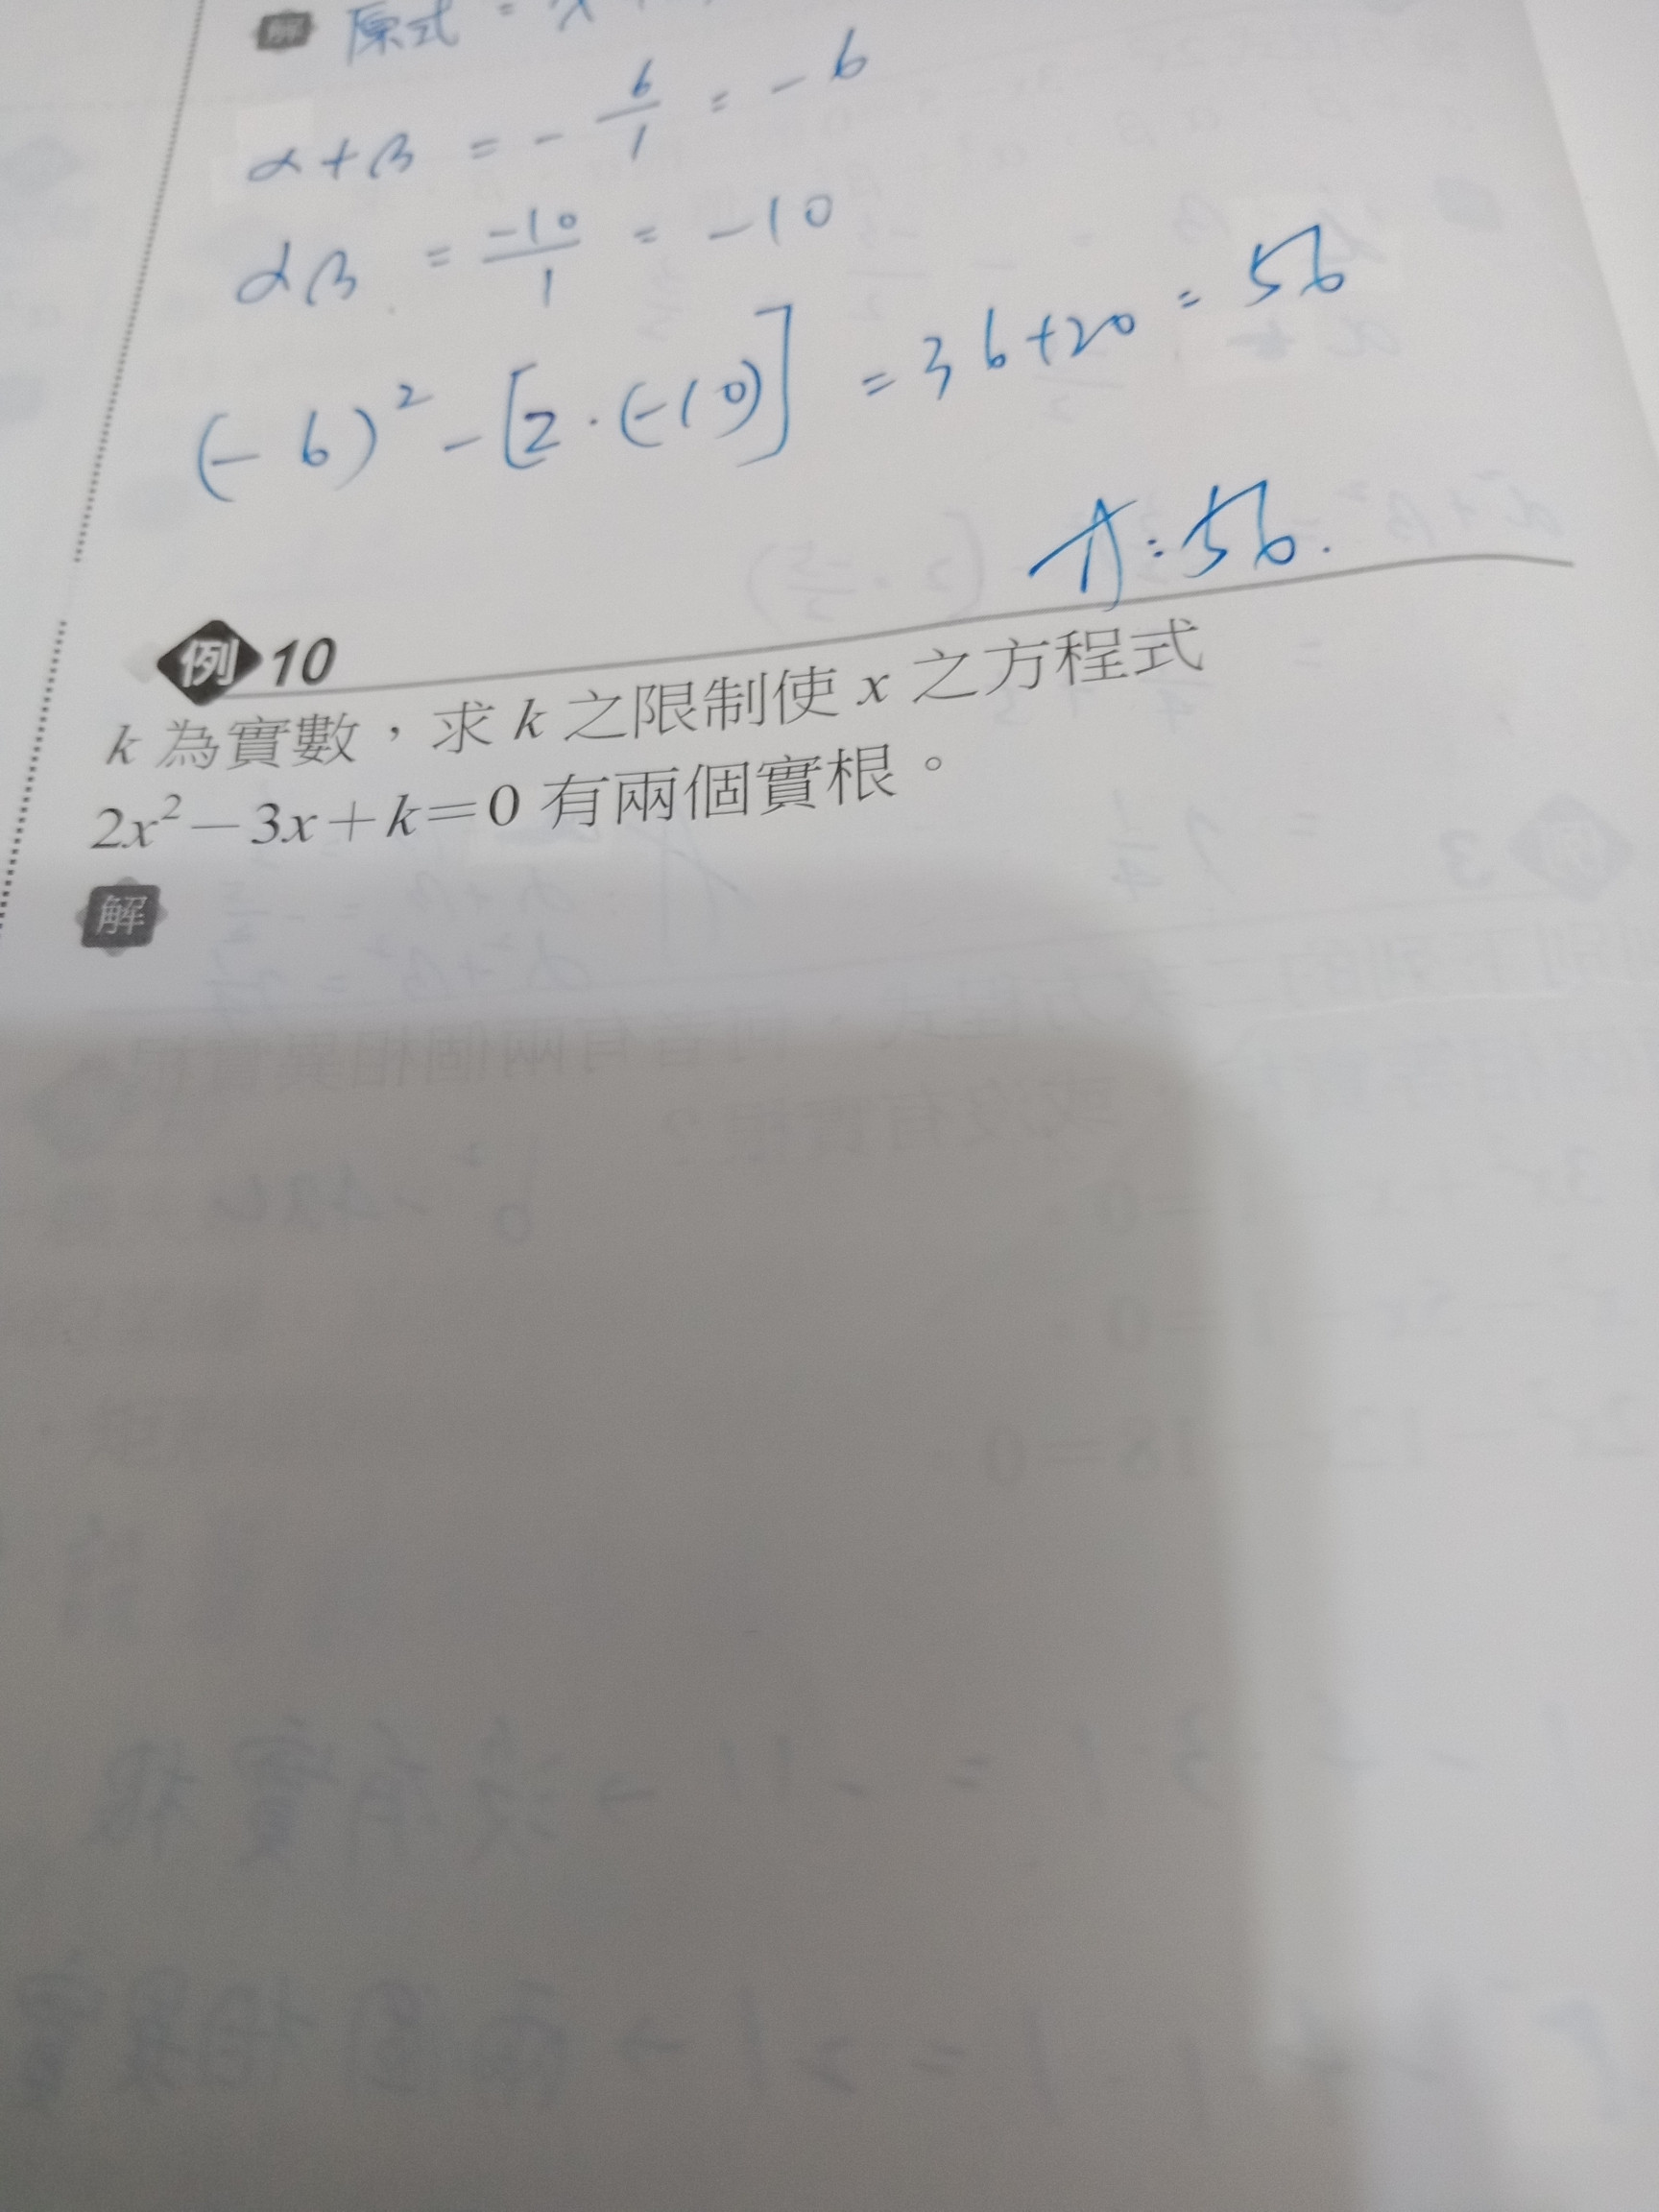 解 原式 =
α+β = - 6/1 = -6
αβ = -10/1 = -10
(-6)² - [2·(-10)] = 36+20 = 56
A: 56.
例 10
k 為實數，求 k 之限制使 x 之方程式
2x²－3x＋k＝0 有兩個實根。
解